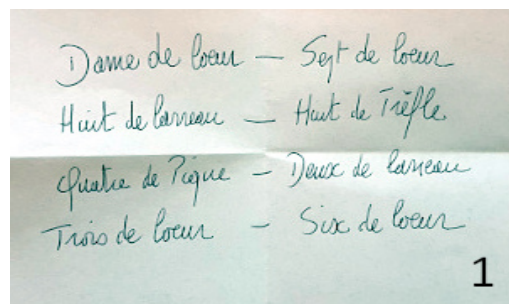 Dame de Coeur — Sept de Coeur
Huit de Carreau — Huit de Trèfle
Quatre de Pique — Deux de Carreau
Trois de Coeur — Six de Coeur
1